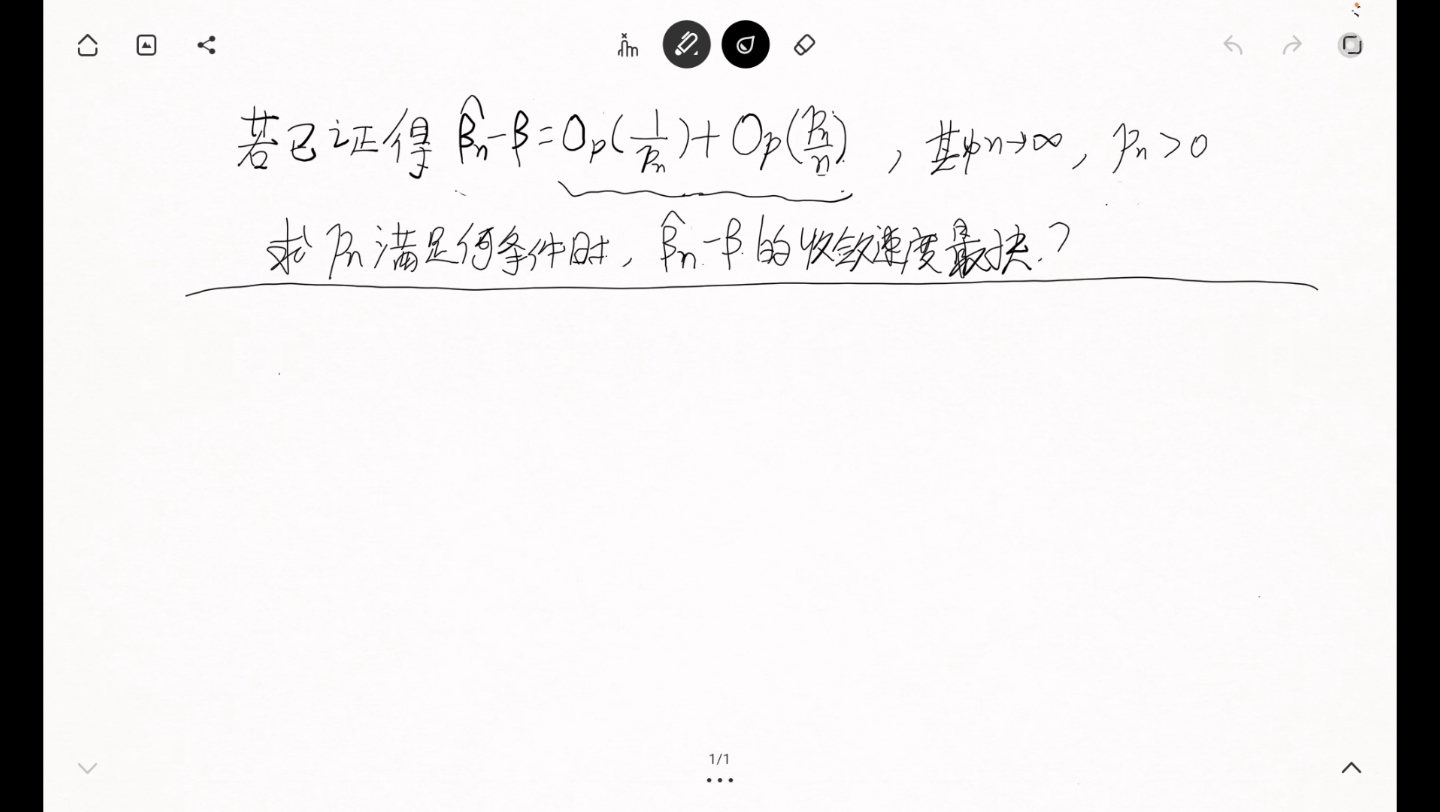 若已证得 β̂ₙ-β=Oₚ(1/pₙ)+Oₚ(pₙ/n), 其中n→∞, pₙ>0
求 pₙ 满足何条件时, β̂ₙ-β 的收敛速度最快?
1/1